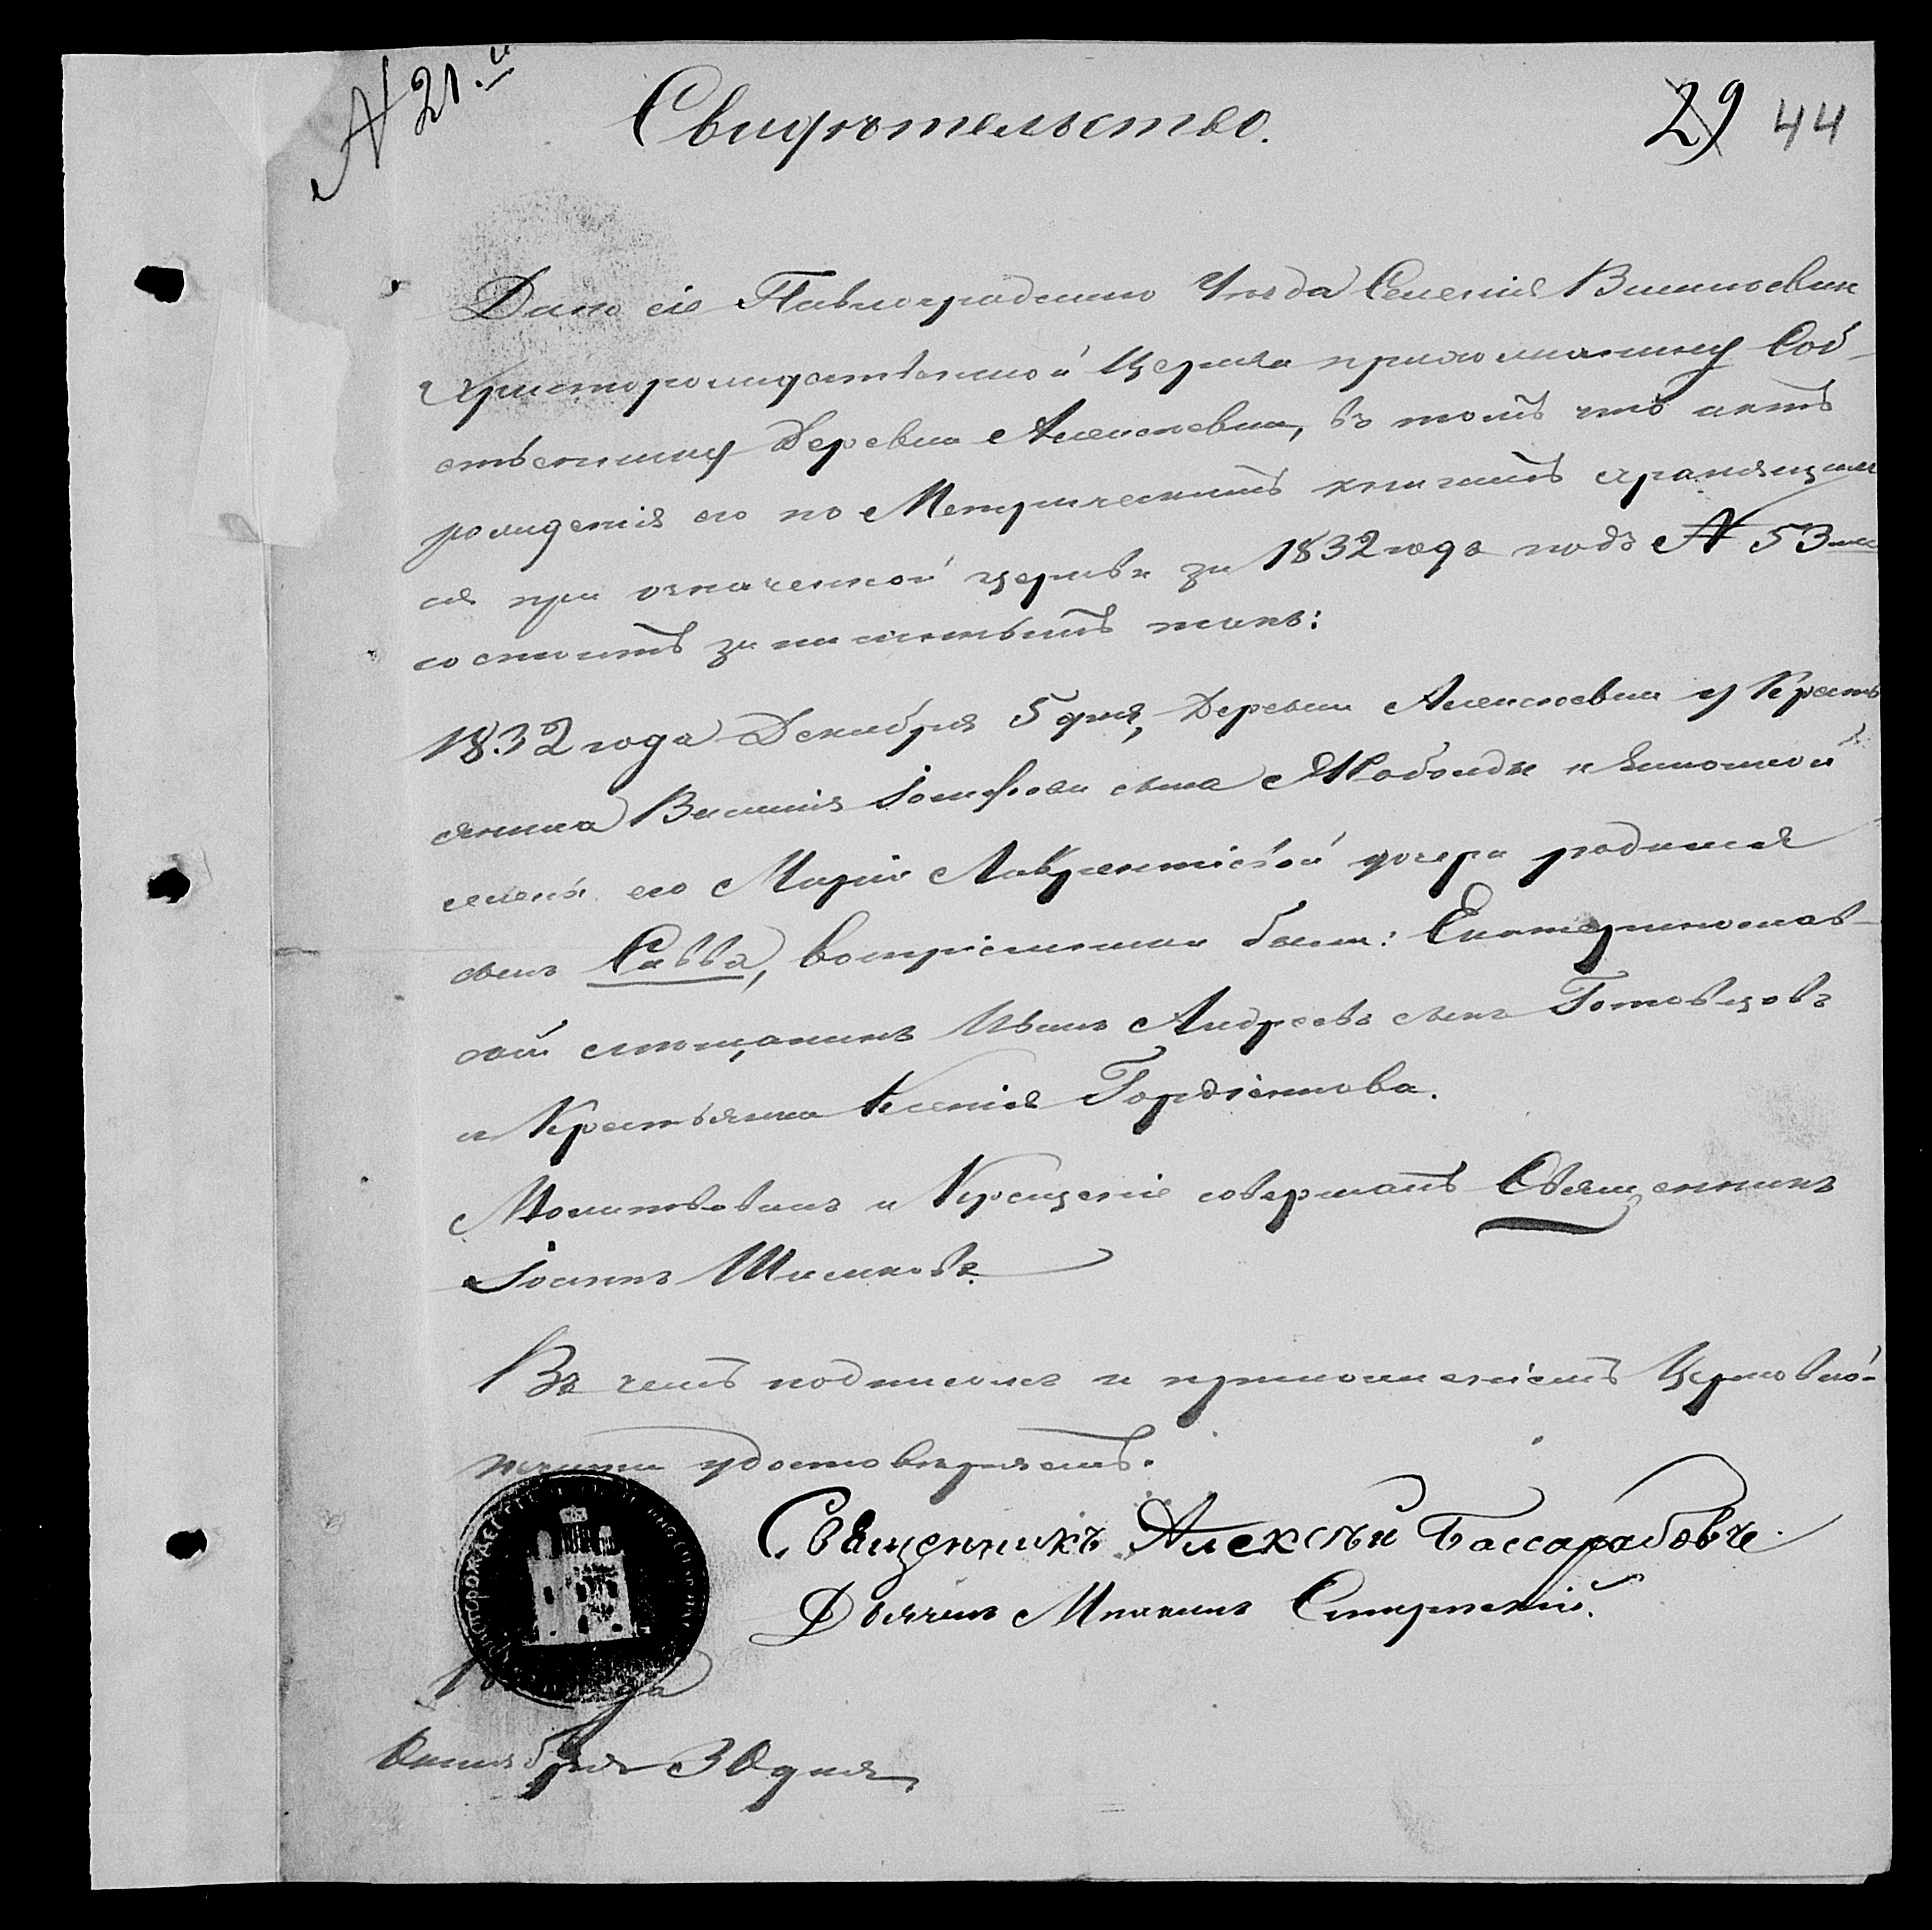 № 21.й
Свидѣтельство.
29 44
Дано сіе Павлоградскаго Уѣзда Селенія Васильевки
Христорождественской Церкви прихожанину Соб-
ственнику Деревни Алексеевки, въ томъ что актъ
рожденія его по Метрическимъ книгамъ хранящим
ся при означенной церкви за 1832 года подъ № 53
состоитъ записаннымъ такъ:
1832 года Декабря 5 дня, Деревни Алексеевки у Кресть
янина Василія Іосифова сына и законной
жены его Маріи Лаврентіевой дочери родился
сынъ Савва, воспріемники были: Екатеринослав-
скій мѣщанинъ Иванъ Андреевъ сынъ Готовцовъ
и Крестьянка Ксенія Гордіенкова.
Молитвовалъ и Крещеніе совершалъ Священникъ
Іоаннъ Шишковъ.
Въ чемъ подписомъ и приложеніемъ Церковной
печати удостовѣряемъ.
Священникъ Алексѣй Бассарабовъ
Дьячекъ Михаилъ
Октября 30 дня